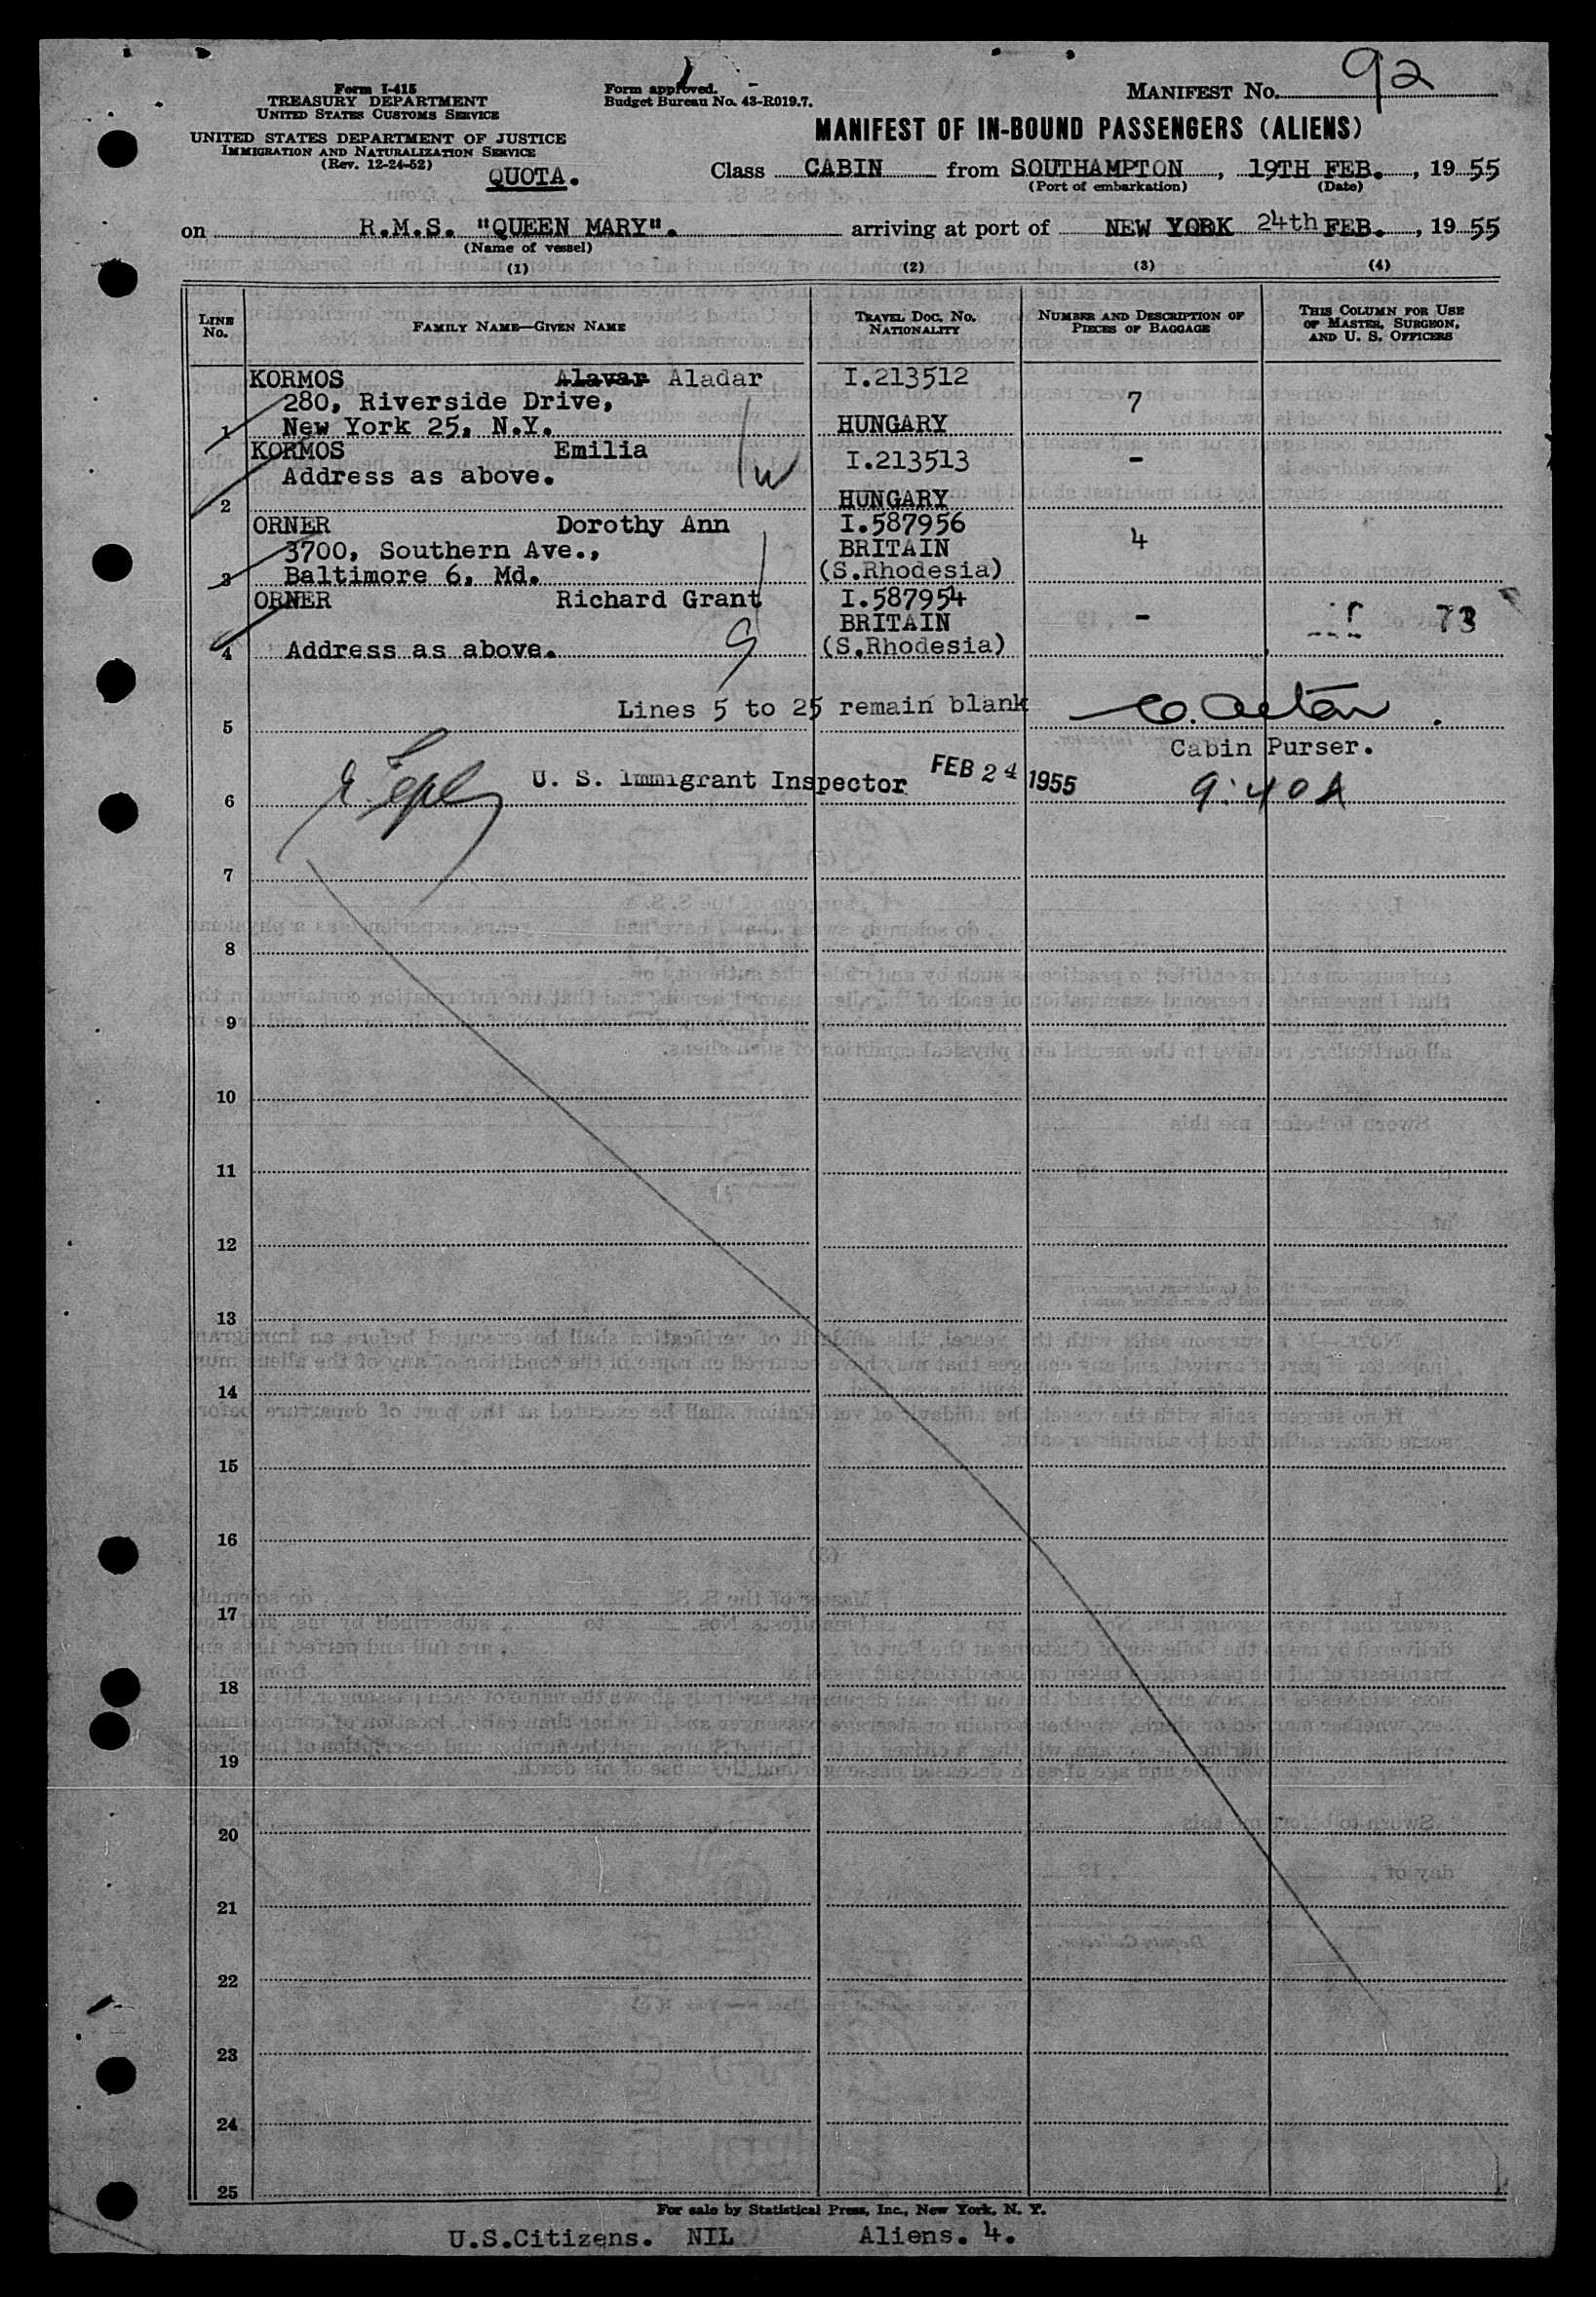 92
Form I-415
TREASURY DEPARTMENT
UNITED STATES CUSTOMS SERVICE
UNITED STATES DEPARTMENT OF JUSTICE
IMMIGRATION AND NATURALIZATION SERVICE
(Rev. 12-24-52)
QUOTA.
Form approved.
Budget Bureau No. 43-R019.7.
MANIFEST NO.
MANIFEST OF IN-BOUND PASSENGERS (ALIENS)
Class CABIN from SOUTHAMPTON, 19TH FEB., 1955
(Port of embarkation) (Date)
on R.M.S. "QUEEN MARY". arriving at port of NEW YORK 24th FEB., 1955
(Name of vessel)
(1) (2) (3) (4)
LINE NO.
FAMILY NAME—GIVEN NAME
TRAVEL DOC. NO. NATIONALITY
NUMBER AND DESCRIPTION OF PIECES OF BAGGAGE
THIS COLUMN FOR USE OF MASTER, SURGEON, AND U. S. OFFICERS
KORMOS Alavar Aladar I.213512
280, Riverside Drive, 7
1 New York 25, N.Y. HUNGARY
KORMOS Emilia I.213513 -
Address as above.
2 HUNGARY
ORNER Dorothy Ann I.587956
3700, Southern Ave., BRITAIN 4
3 Baltimore 6, Md. (S.Rhodesia)
ORNER Richard Grant I.587954
BRITAIN - 73
4 Address as above. (S.Rhodesia)
Lines 5 to 25 remain blank
5
Cabin Purser.
U. S. Immigrant Inspector FEB 24 1955 9:40A
6
7
8
9
10
11
12
13
14
15
16
17
18
19
20
21
22
23
24
25
For sale by Statistical Press, Inc., New York, N. Y.
U.S.Citizens. NIL Aliens. 4.